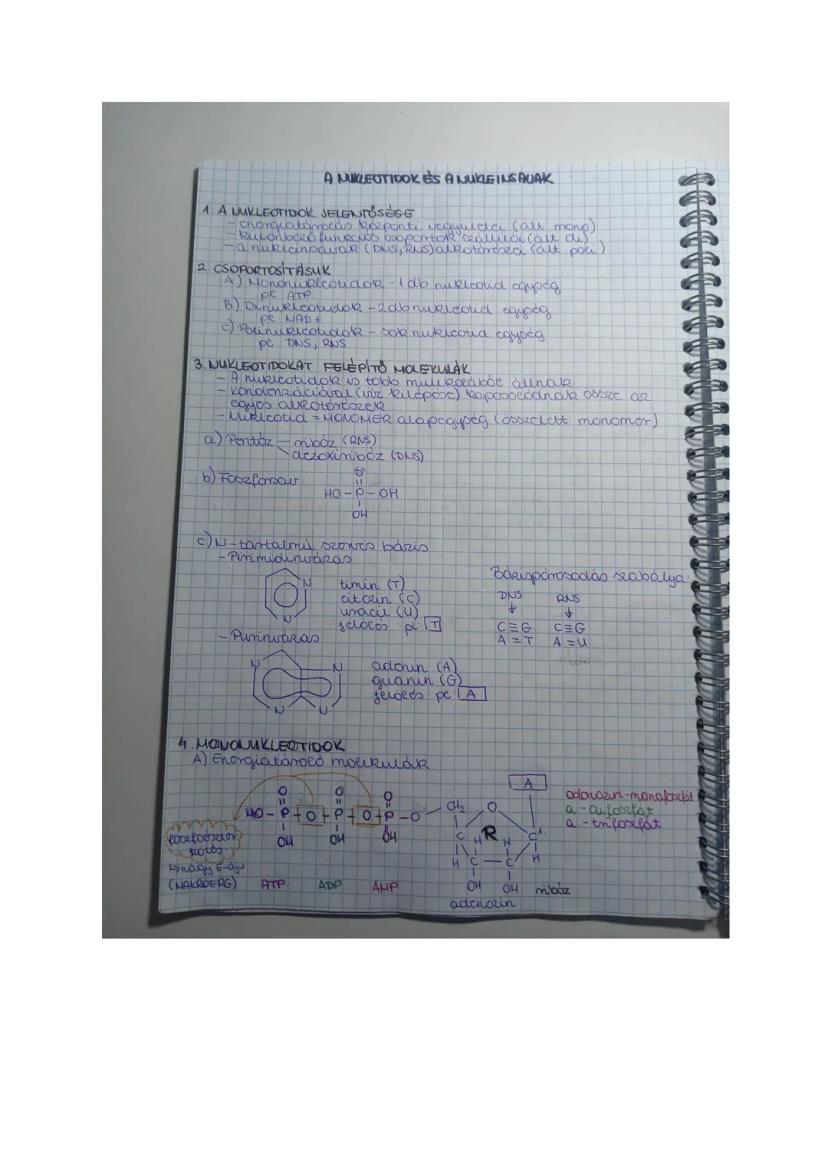 A NUKLEOTIDOK ÉS A NUKLEINSAVAK
1. A NUKLEOTIDOK JELENTŐSÉGE
- energiatárolás központi vegyületei (ált. mono)
- különböző funkciós csoportok szállítói (ált. di)
- a nukleinsavak (DNS, RNS) alkotórészei (ált. poli)
2. CSOPORTOSÍTÁSUK
A) Mononukleotidok - 1 db nukleotid egység
pl. ATP
B) Dinukleotidok - 2 db nukleotid egység
pl. NAD+
C) Polinukleotidok - sok nukleotid egység
pl. DNS, RNS
3. NUKLEOTIDOKAT FELÉPÍTŐ MOLEKULÁK
- A nukleotidok is több molekulából állnak
- kondenzációval (víz kilépése) kapcsolódnak össze az
egyes alkotórészek
- Nukleotid = MONOMER alapegység (összetett monomer)
a) Pentóz - ribóz (RNS)
dezoxiribóz (DNS)
b) Foszforsav
O
HO - P - OH
OH
c) N-tartalmú szerves bázis
- Pirimidinvázas
N
N
timin (T)
citozin (C)
uracil (U)
jelölés pl. T
Bázispárosodás szabálya:
DNS RNS
C≡G C≡G
A=T A=U
- Purinvázas
N N
N N
adenin (A)
guanin (G)
jelölés pl. A
4. MONONUKLEOTIDOK
A) Energiatároló molekulák
O O O
HO - P - O - P - O - P - O - CH2 O
OH OH OH
C H R H C1
H C - C H
OH OH ribóz
A
adenozin
adenozin-monofoszfát
a - difoszfát
a - trifoszfát
foszfoészter
kötés
nagy E-ájú
(MAKROERG) ATP ADP AMP